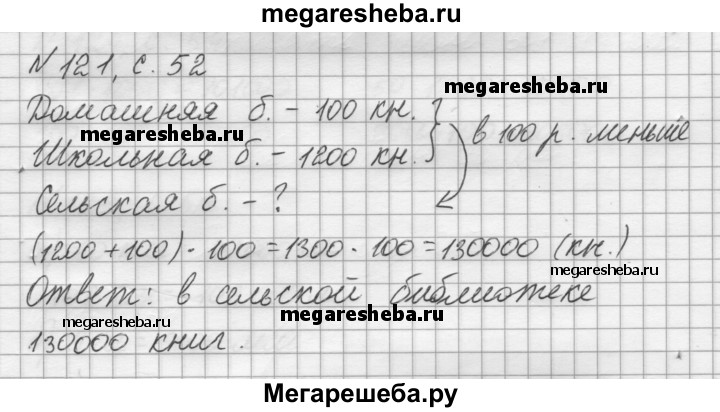 megaresheba.ru
N 121, с. 52
megaresheba.ru
Домашняя б. - 100 кн. } в 100 р. меньше
megaresheba.ru
Школьная б. - 1200 кн.
Сельская б. - ?
(1200 + 100) · 100 = 1300 · 100 = 130000 (кн.)
megaresheba.ru
Ответ: в сельской библиотеке
megaresheba.ru megaresheba.ru
130000 книг.
Мегарешеба.ру